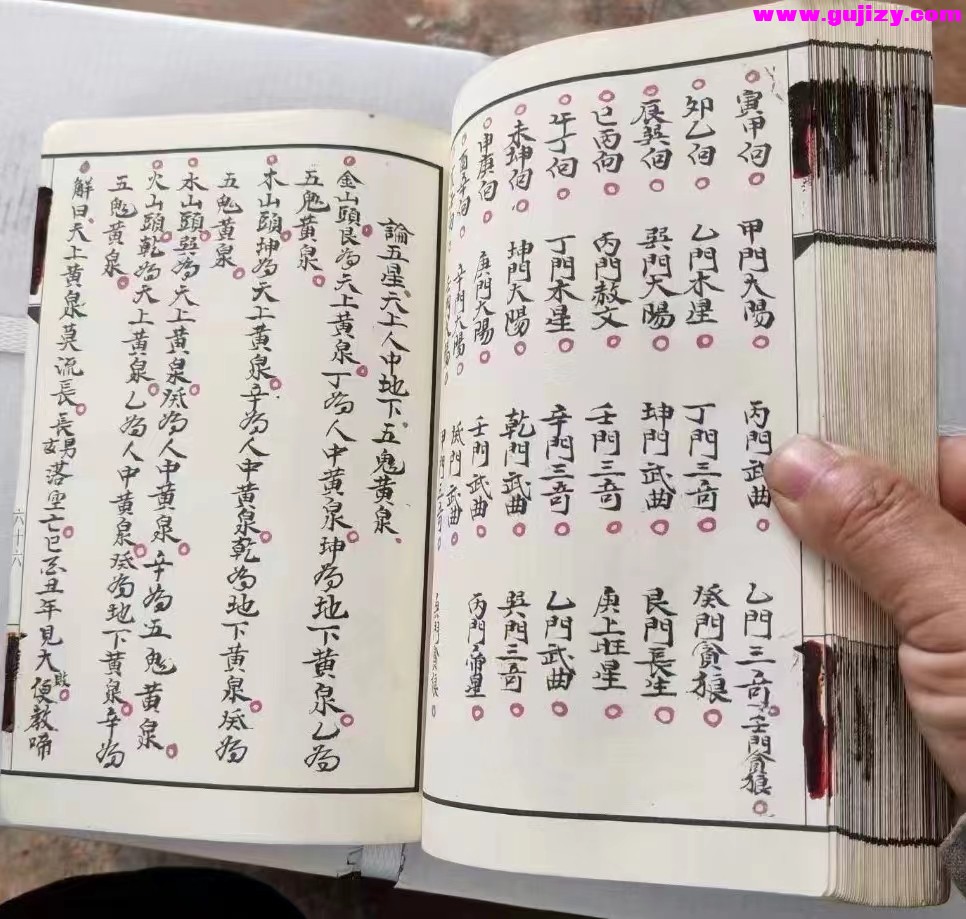 www.gujizy.com
寅甲向○ 甲門太陽○ 丙門武曲○ 乙門三奇 壬門貪狼○
○夘乙向○ 乙門木星○ 丁門三奇○ 癸門貪狼○
○辰巽向○ 巽門太陽○ 坤門武曲○ 艮門長生○
○巳丙向○ 丙門赦文○ 壬門三奇○ 庚上旺星○
○午丁向○ 丁門木星○ 辛門三奇○ 乙門武曲○
○未坤向○ 坤門太陽○ 乾門武曲○ 巽門三奇○
○申庚向○ 庚門太陽○ 壬門武曲○ 丙門帝星○
○酉辛向○ 辛門太陽○ 癸門武曲○
甲門三奇○ 貪狼○
論五星天上人中地下五鬼黃泉
金山頭艮為天上黃泉○丁為人中黃泉○坤為地下黃泉○乙為
五鬼黃泉○
木山頭坤為天上黃泉○辛為人中黃泉○乾為地下黃泉○癸為
五鬼黃泉○
水山頭巽為天上黃泉○癸為人中黃泉○辛為五鬼黃泉○
火山頭乾為天上黃泉○乙為人中黃泉○癸為地下黃泉○辛為
五鬼黃泉○
解曰天上黃泉莫流長○長男落空亡○巳酉丑年見大敗○便教啼
六十六